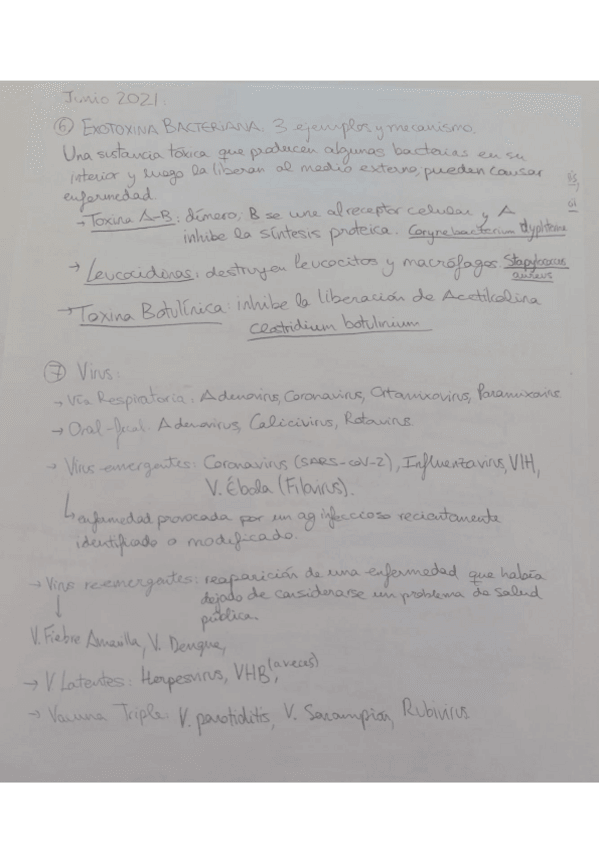 Junio 2021.
⑥ EXOTOXINA BACTERIANA. 3 ejemplos y mecanismo.
Una sustancia tóxica que producen algunas bacterias en su
interior y luego la liberan al medio externo, pueden causar
enfermedad.
→ Toxina A-B: dímero, B se une al receptor celular y A
inhibe la síntesis proteica. Corynebacterium dyphteriae
→ Leucocidinas: destruyen leucocitos y macrófagos. Stapylococcus
aureus
→ Toxina Botulínica: inhibe la liberación de Acetilcolina
Clostridium botulinium
⑦ Virus:
→ Vía Respiratoria: Adenovirus, Coronavirus, Ortomixovirus, Paramixovirus
→ Oral-fecal: Adenovirus, Calicivirus, Rotavirus
→ Virus emergentes: Coronavirus (SARS-CoV-2), Influenzavirus, VIH,
V. Ébola (Filovirus).
↳ enfermedad provocada por un ag infeccioso recientemente
identificado o modificado.
→ Virus reemergentes: reaparición de una enfermedad que había
dejado de considerarse un problema de salud
pública.
↓
V. Fiebre Amarilla, V. Dengue,
→ V Latentes: Herpesvirus, VHB, (a veces)
→ Vacuna Triple: V. parotiditis, V. Sarampión, Rubivirus